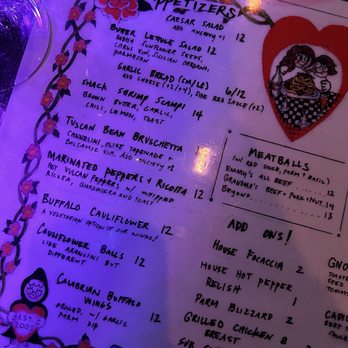 APPETIZERS
CAESAR SALAD 12
ADD ANCHOVY +2
BUTTER LETTUCE SALAD 12
SUNFLOWER SEEDS,
SICILIAN OREGANO,
PARMESAN
GARLIC BREAD (SM/LG) 6/12
ADD CHEESE (+2/+4), SIDE RED SAUCE (+2)
SNACK SHRIMP SCAMPI 14
BROWN BUTTER, GARLIC,
CHILI, LEMON, TOAST
TUSCAN BEAN BRUSCHETTA
CANNELLINI, OLIVE TAPENADE +
BALSAMIC VIN. ADD ANCHOVY +2
MARINATED PEPPERS + RICOTTA
HOT VULCAN PEPPERS W/ WHIPPED
RICOTTA, GIARDINIERA AND TOAST 12
BUFFALO CAULIFLOWER 12
A VEGETARIAN OPTION OF OUR WINGS!
CAULIFLOWER BALLS 12
LIKE ARANCINI BUT
DIFFERENT
CALABRIAN BUFFALO
WINGS 12
GRILLED, W/ GARLIC
PARM DIP
MEATBALLS
(W/ RED SAUCE, PARM + BASIL)
EMMY'S ALL BEEF 12
GRANDMA'S BEEF + PORK + NUT. 14
BEYOND 13
ADD ONS!
HOUSE FOCACCIA 2
HOUSE HOT PEPPER
RELISH 1
PARM BLIZZARD 2
GRILLED CHICKEN 8
BREAST
GNO
TOASTED
SEED
TOMATO
CAV
BEEF